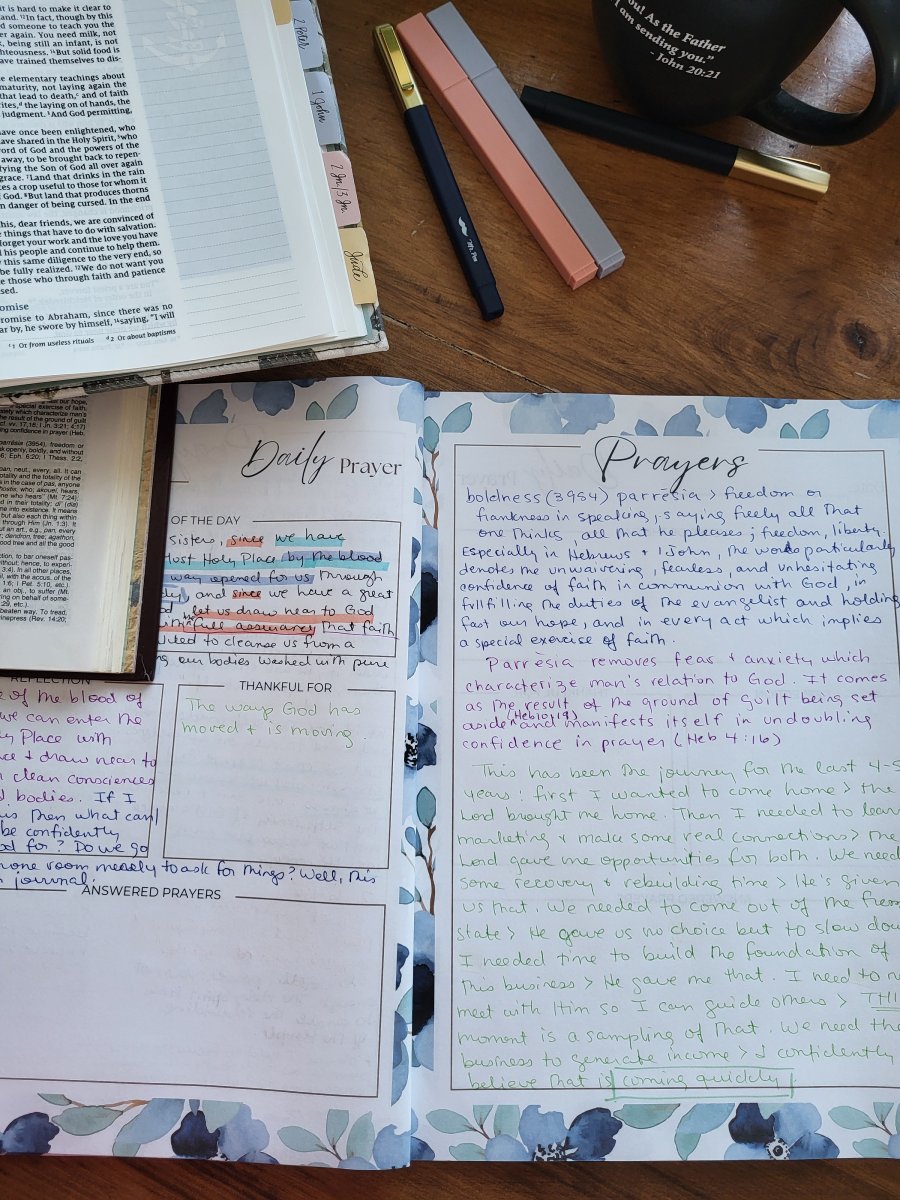 it is hard to make it clear to
and. ¹²In fact, though by this
d someone to teach you the
er again. You need milk, not
, being still an infant, is not
hteousness. ¹⁴But solid food is
ave trained themselves to dis-
e elementary teachings about
maturity, not laying again the
that lead to death,ᶜ and of faith
rites,ᵈ the laying on of hands, the
judgment. ³And God permitting,
have once been enlightened, who
ave shared in the Holy Spirit, ⁵who
ord of God and the powers of the
away, to be brought back to repen-
fying the Son of God all over again
grace. ⁷Land that drinks in the rain
ces a crop useful to those for whom it
God. ⁸But land that produces thorns
n danger of being cursed. In the end
his, dear friends, we are convinced of
e things that have to do with salvation.
forget your work and the love you have
his people and continue to help them.
this same diligence to the very end, so
be fully realized. ¹²We do not want you
e those who through faith and patience
sed.
omise
romise to Abraham, since there was no
ar by, he swore by himself, ¹⁴saying, "I will
ᶜ1 Or from useless rituals ᵈ2 Or about baptisms
2 Peter
1 John
2 Jn./3 Jn.
Jude
Mr. Pen
ou! As the Father
I am sending you."
- John 20:21
Daily Prayer
OF THE DAY
sisters, since we have
Most Holy Place by the blood
way opened for us through
and since we have a great
let us draw near to God
full assurance that faith
to cleanse us from a
our bodies washed with pure
REFLECTION
of the blood of
we can enter the
Place with
& draw near to
clean consciences
bodies. If I
then what can I
be confidently
for? Do we go
room merely to ask for things? Well, this
journal.
THANKFUL FOR
The ways God has
moved + is moving.
ANSWERED PRAYERS
Prayers
boldness (3954) parresia > freedom or
frankness in speaking, saying freely all that
one thinks, all that he pleases; freedom, liberty,
Especially in Hebrews + 1 John, the word particularly
denotes the unwavering, fearless, and unhesitating
confidence of faith in communion with God, in
fullfilling the duties of the evangelist and holding
fast our hope, and in every act which implies
a special exercise of faith.
Parrèsia removes fear + anxiety which
characterize man's relation to God. It comes
as the result of the ground of guilt being set
aside (Heb 10:19) and manifests itself in undoubting
confidence in prayer (Heb 4:16)
This has been the journey for the last 4-5
years: first I wanted to come home > the
Lord brought me home. Then I needed to learn
marketing + make some real connections > the
Lord gave me opportunities for both. We need
some recovery + rebuilding time > He's given
us that. We needed to come out of the
state > He gave us no choice but to slow dow
I needed time to build the foundation of
this business > He gave me that. I need to
meet with Him so I can guide others >
moment is a sampling of that. We need the
business to generate income > I confidently
believe that is coming quickly